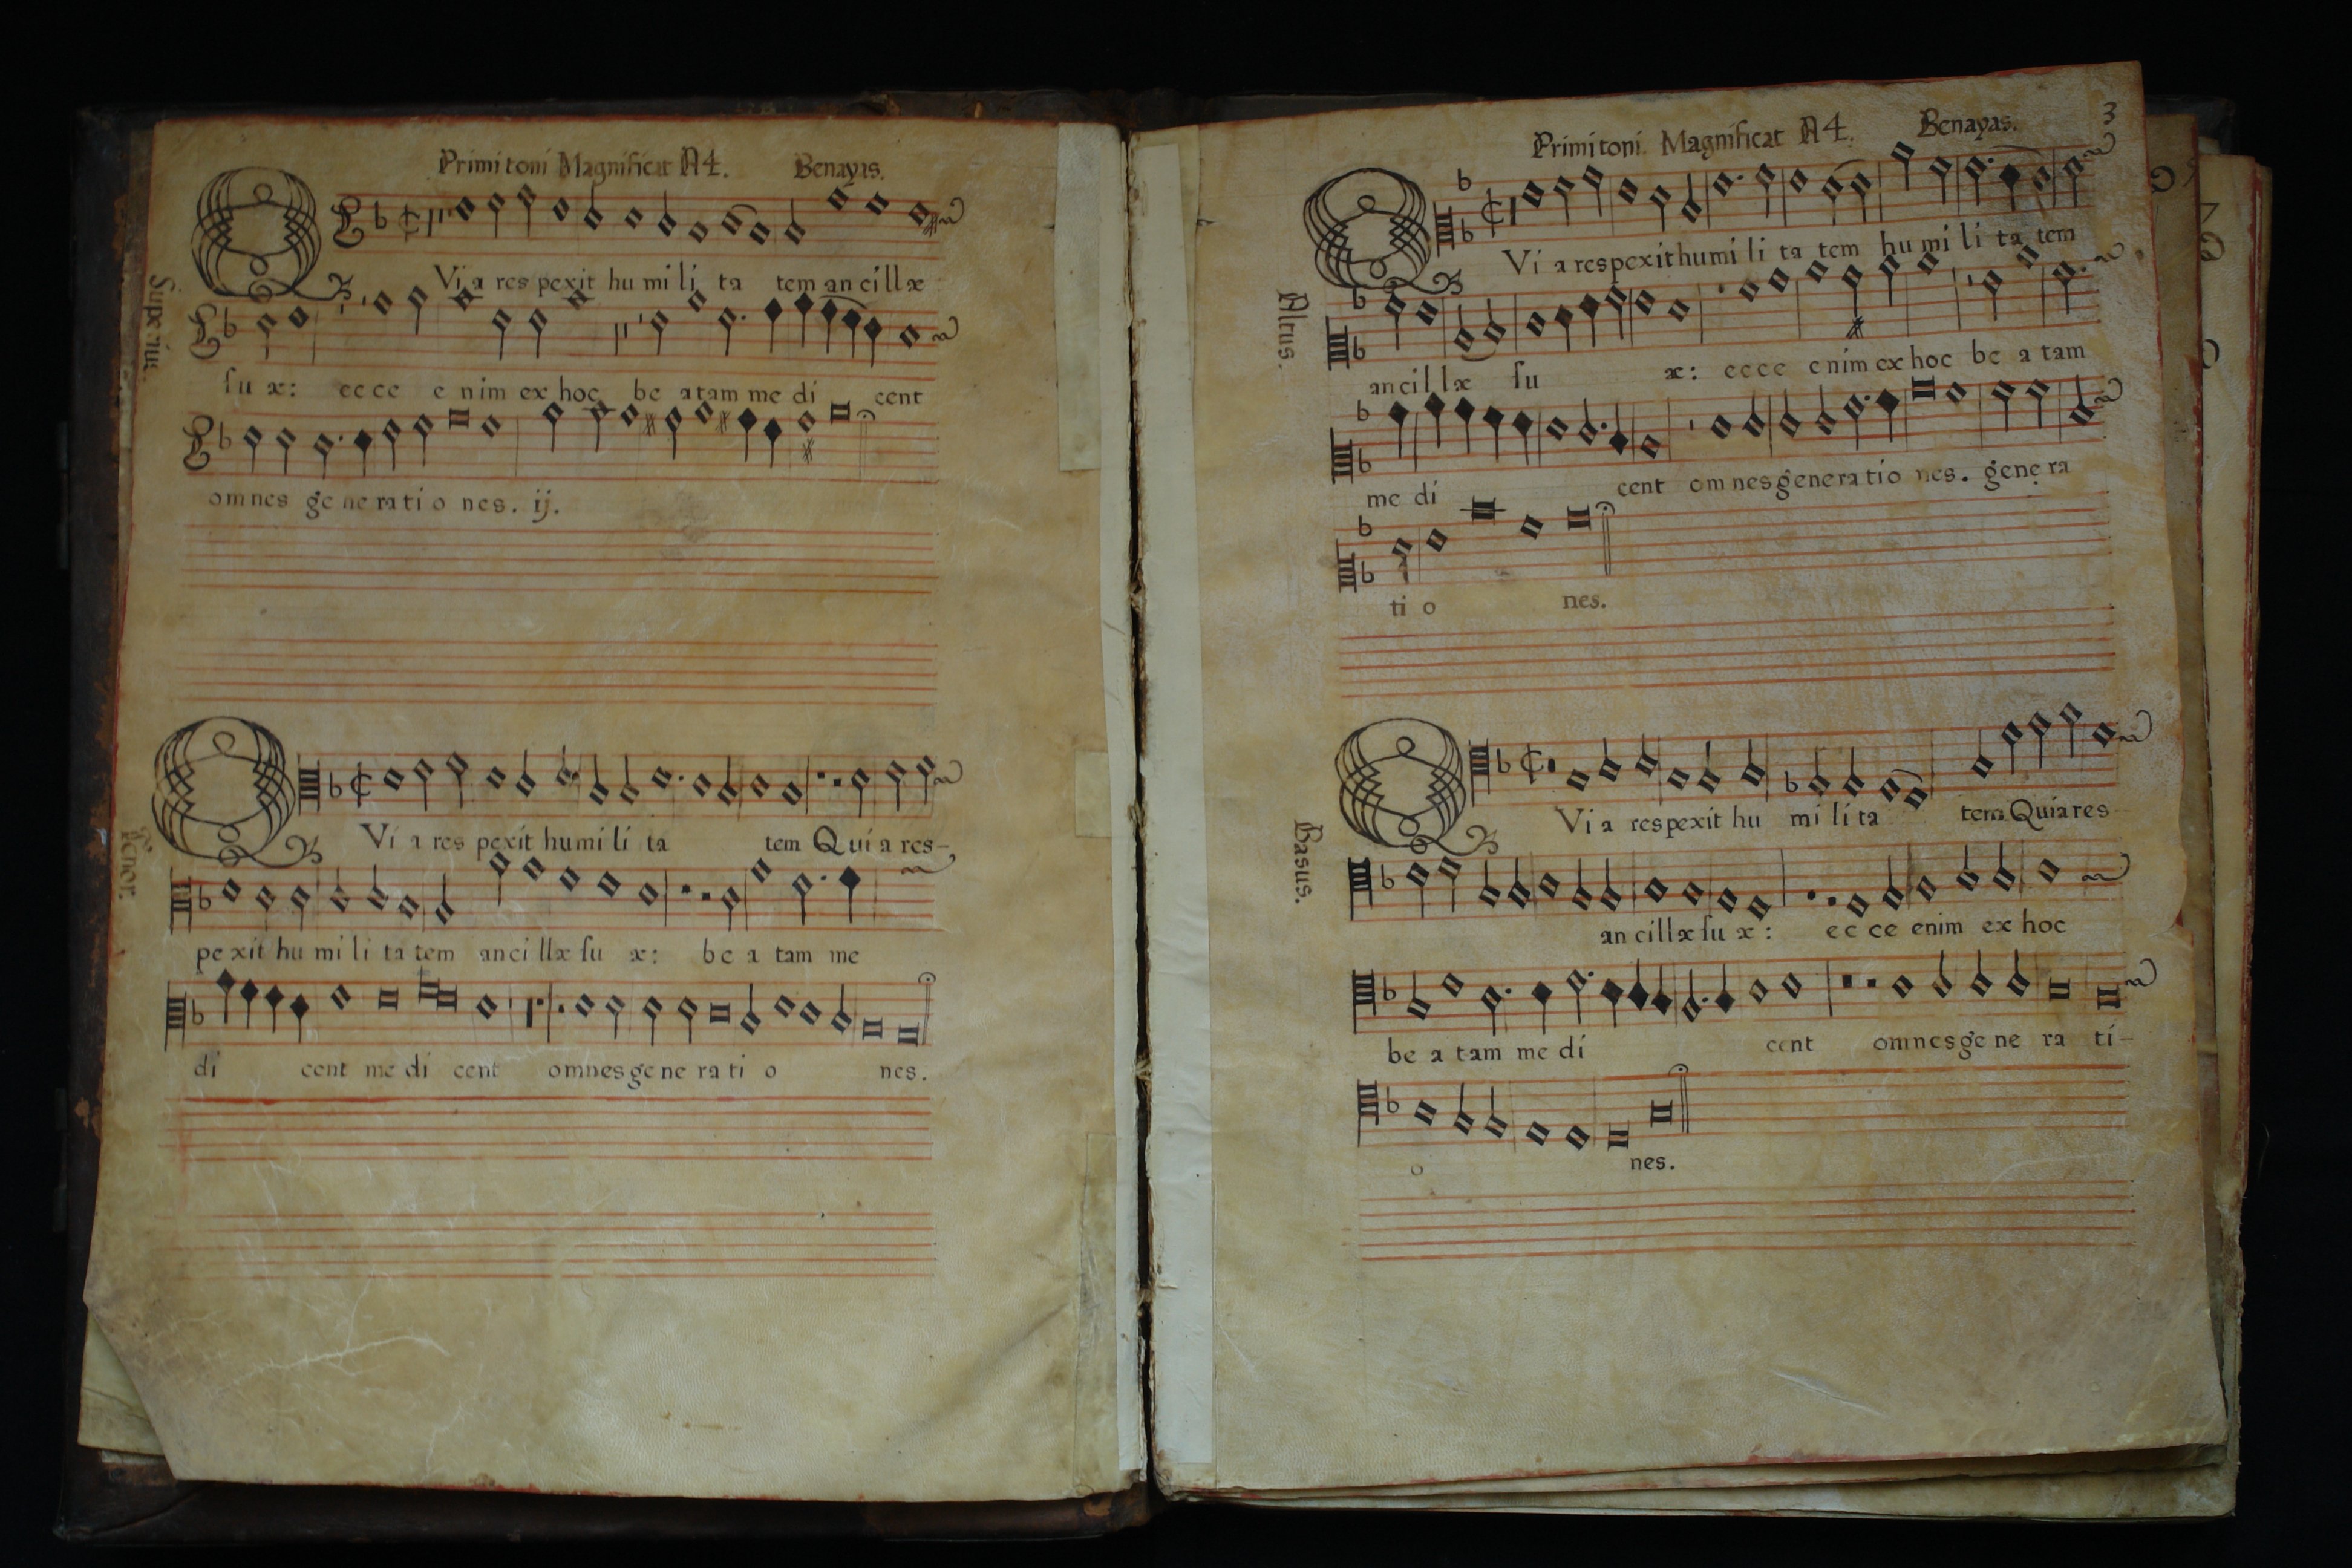 Primi toni Magnificat A4. Benayas.
Superius.
Qvi a res pexit hu mi li ta tem an cillæ
ſu æ: ecce e nim ex hoc be atam me di cent
omnes ge ne ra ti o nes. ij.
Tenor.
Qvi a res pexit humi li ta tem Qui a res-
pe xit hu mi li ta tem an ci llæ ſu æ: be a tam me
di cent me di cent omnes ge ne ra ti o nes.
Primi toni Magnificat A4. Benayas. 3
Altus.
Qvi a respexit humi li ta tem hu mi li ta tem
an cil læ ſu æ: ecce enim ex hoc be a tam
me di cent om nes genera tio nes. gene ra
ti o nes.
Basus.
Qvi a respexit hu mi li ta tem Quia res
an cillæ ſu æ: ec ce enim ex hoc
be a tam me di cent omnes ge ne ra ti-
o nes.